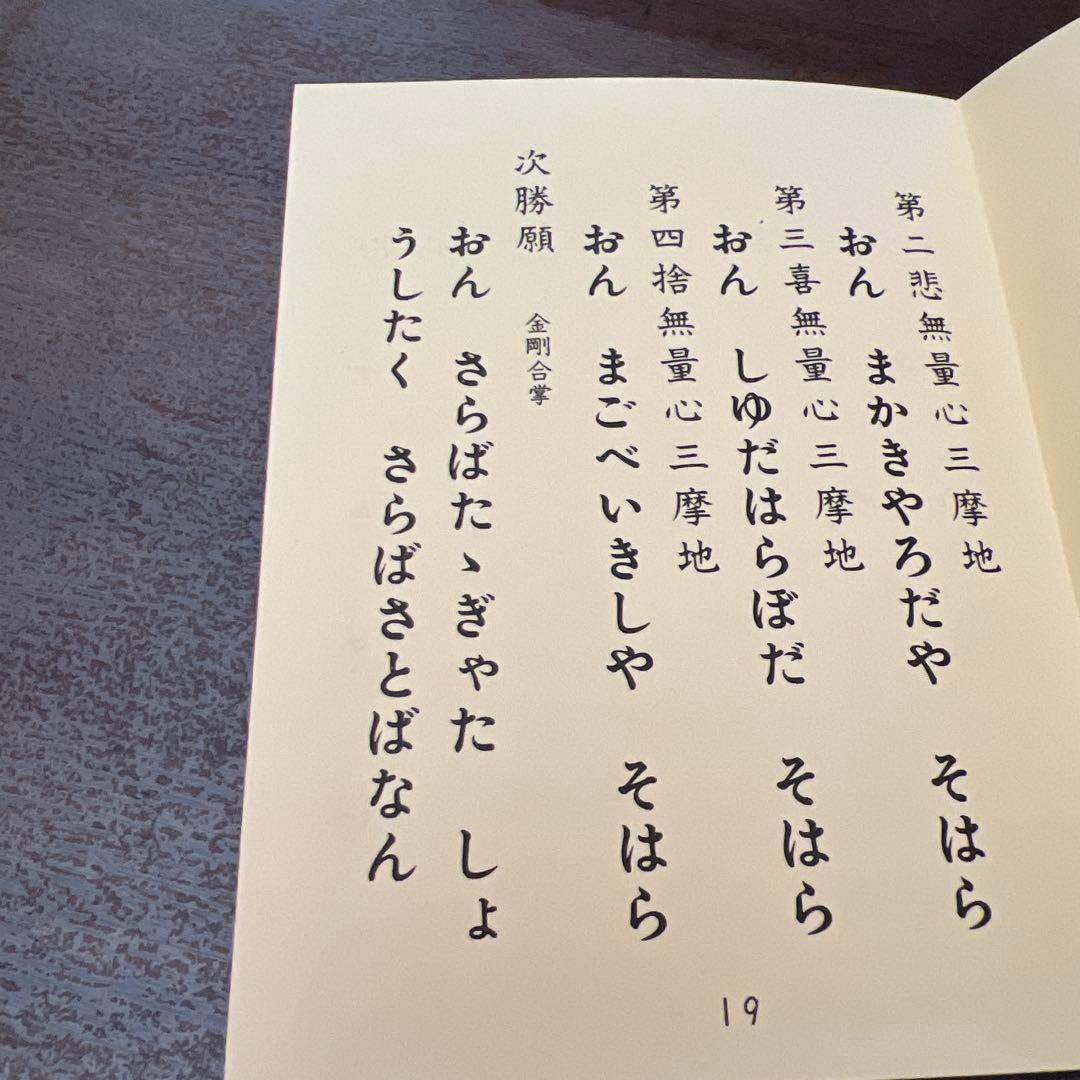 第二悲無量心三摩地
おん　まかきやろだや　そはら
第三喜無量心三摩地
おん　しゆだはらぼだ　そはら
第四捨無量心三摩地
おん　まごべいきしや　そはら
次勝願　金剛合掌
おん　さらばたゝぎゃた　しょ
うしたく　さらばさとばなん
19